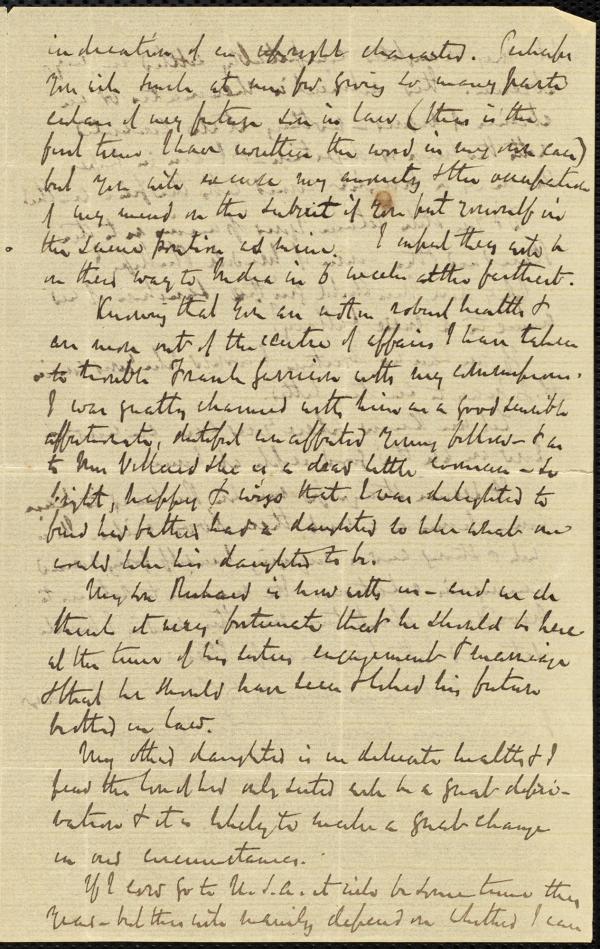 indication of an upright character. Perhaps
you will smile at me for giving so many parti
culars of my future son in law (this is the
first time I have written the word in my own case)
but you will excuse my anxiety & the occupation
of my mind on the subject if you put yourself in
the same position as mine. I expect they will be
on their way to India in 6 weeks at the farthest.
Knowing that you are not in robust health &
are more out of the centre of affairs I have taken
to trouble Frank Garrison with my commissions.
I was greatly charmed with him as a good sensible
affectionate, dutiful unaffected young fellow - & as
to Mrs Villard she is a dear little woman - so
bright, happy & wise that I was delighted to
find her father had a daughter so like what one
would like his daughter to be.
My son Richard is now with us - and we do
think it very fortunate that he should be here
at the time of his sisters engagement & marriage
& that he should have seen & liked his future
brother in law.
My other daughter is in delicate health & I
fear the loss of her only sister will be a great depri-
vation & it is likely to make a great change
in our circumstances.
If I ever go to U.S.A. it will be some time this
year - but this will mainly depend on whether I can